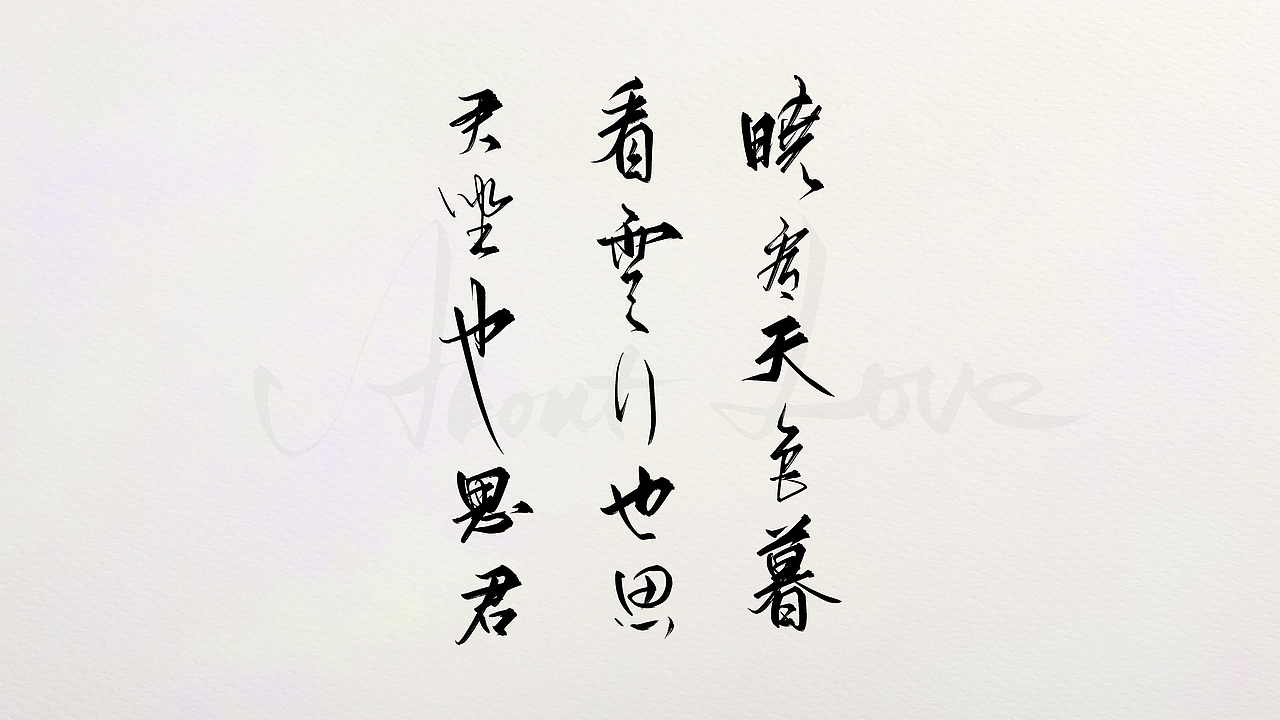 曉看天色暮
看雲行也思
君坐也思君
About Love